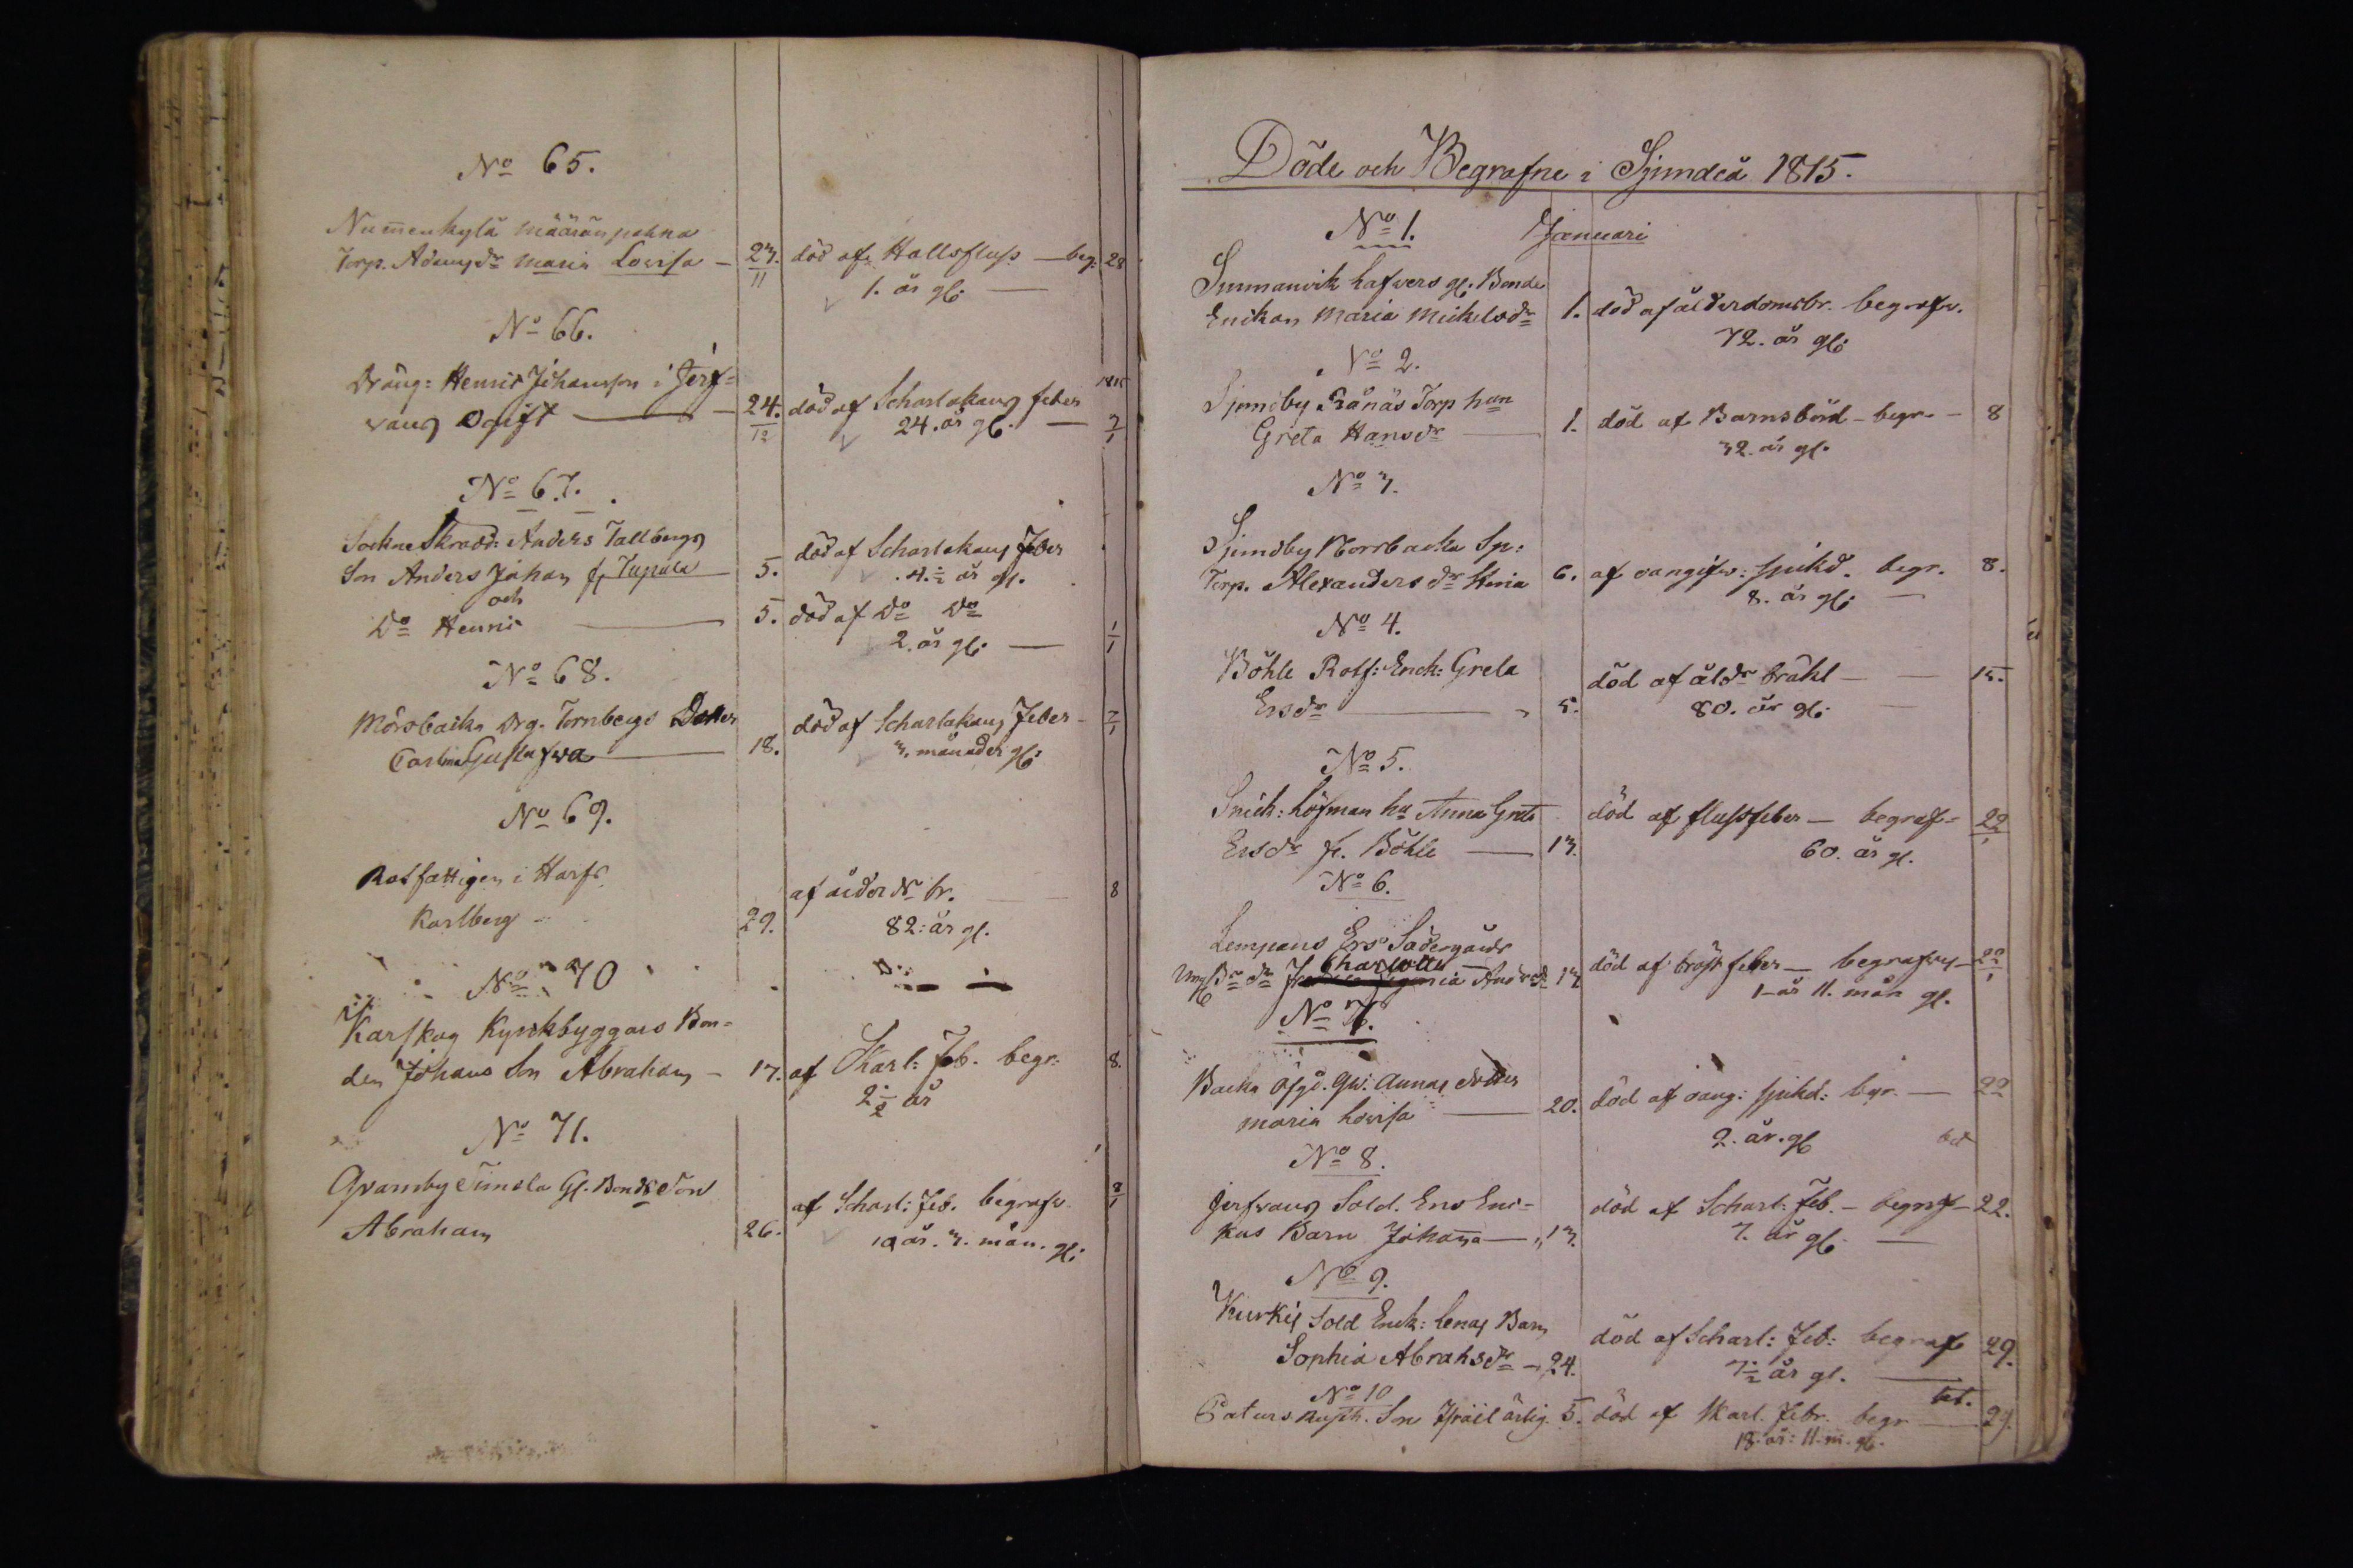 No 65.
Nummenkylä Määränpakka
Torp. Adams dr Maria Lovisa — 23. död af Hallsfluss — beg: 28
11
1. år gl: —
No 66.
Dräng: Henric Johansson i Jerf=
vans Ogift — 24. död af Scharlakans feber 1815
12
24. år gl. —
No 67.
Sockne Skrädd: Anders Tallbergs
Son Anders Johan fr Tupala 5. död af Scharlakans Feber
4. 1/2 år gl.
och
Do Henric — 5. död af Do Do
2. år gl: — 1/1
No 68.
Mörsbacka Drg. Tornbergs Dotter
Carolina Gustafva — 18. död af Scharlakans Feber —
3. månader gl:
No 69.
Rotfattigen i Harfs
Karlberg 29. af ålder dr br. 8
82: år gl.
No 70
Karskog Kyrkbyggars Bon=
den Johans Son Abraham — 17. af Skarl: Feb. begr: 8.
2 1/2 år
No 71.
Gramby Simola Gl. Bonde Son
Abraham 26. af Scharl: Feb. begrafv. 8/1
år. 3. mån. gl:
Döde och Begrafne i Sjundeå 1815.
No 1. Januari
Sunnanvik Hafvers gl. Bonde
Enckan Maria Mickelsdr 1. död af ålderdomsbr. begrafv.
72. år gl:
No 2.
Sjundby Rånäs Torp hun
Greta Hansdr — 1. död af Barnsbörd — begr. — 8
32. år gl.
No 3.
Sjundby Norrbacka Sp:
Torp. Alexanders dr Stina 6. af oangifv: sjukd. begr. 8.
8. år gl: —
No 4.
Böhle Rotf: Enck: Greta
Ersdr — 5. död af åldr bräkl — — 15.
80. år gl: —
No 5.
Snick: Löfman hu Anna Greta
Ersdr fr. Böhle — 13. död af flussfeber — begraf= 22/1
60. år gl.
No 6.
Lempans Ers Södergårds
Charlotta
Andersdr 13 död af bröstfeber — begrafven — 22/1
1 år 11. mån gl.
No 7.
Backa Ösgd. Qv: Annas dotter
Maria Lovisa — 20. död af oang: sjukd: begr. — 22
2. år. gl bet
No 8.
Jerfvans Sold. Ers Eric=
kus Barn Johanna — 13. död af Scharl: Feb. — begraf — 22.
7. år gl —
No 9.
Kurkis Sold Enck: Lenas Barn
Sophia Abrahsdr — 24. död af Scharl: Feb: begraf 29.
7 1/2 år gl. —
No 10 bet.
Paturs Rusth. Son Israël ärlig. 5. död af Skarl. Febr. begr — 29.
18. år: 11. m. gl.